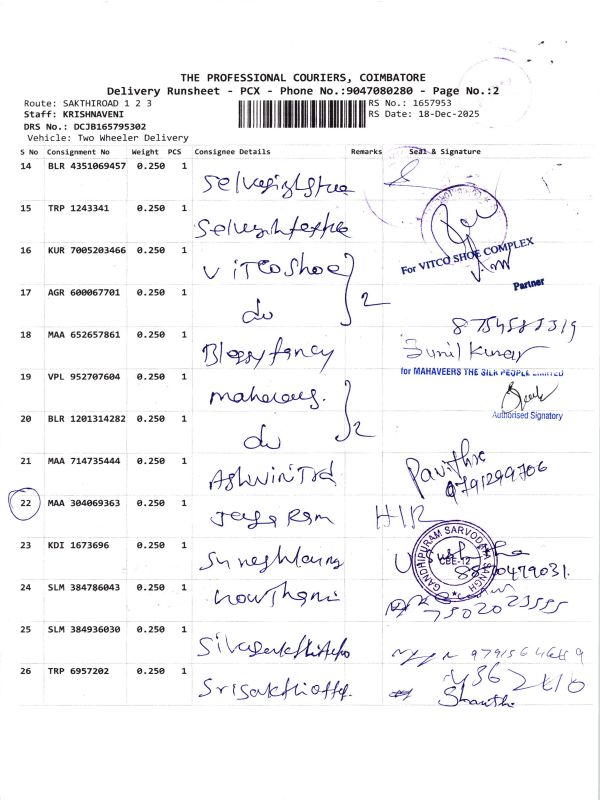 THE PROFESSIONAL COURIERS, COIMBATORE
Delivery Runsheet - PCX - Phone No.:9047080280 - Page No.:2
Route: SAKTHIROAD 1 2 3
RS No.: 1657953
Staff: KRISHNAVENI
RS Date: 18-Dec-2025
DRS No.: DCJB165795302
Vehicle: Two Wheeler Delivery
S No Consignment No Weight PCS Consignee Details Remarks Seal & Signature
14 BLR 4351069457 0.250 1
15 TRP 1243341 0.250 1
16 KUR 7005203466 0.250 1 VITCO Shoe
For VITCO SHOE COMPLEX
Partner
17 AGR 600067701 0.250 1 do 2
18 MAA 652657861 0.250 1 Blossy fancy
Sunil Kumar
19 VPL 952707604 0.250 1
for MAHAVEERS THE SILK PEOPLE LIMITED
Authorised Signatory
20 BLR 1201314282 0.250 1 do 2
21 MAA 714735444 0.250 1 Ashwin Trd
Pavithra
9791299706
22 MAA 304069363 0.250 1 Jeya Ram
23 KDI 1673696 0.250 1
GANDHIPURAM SARVODAYA SANGH
CBE-12
24 SLM 384786043 0.250 1
7502023555
25 SLM 384936030 0.250 1
26 TRP 6957202 0.250 1
Shanthi